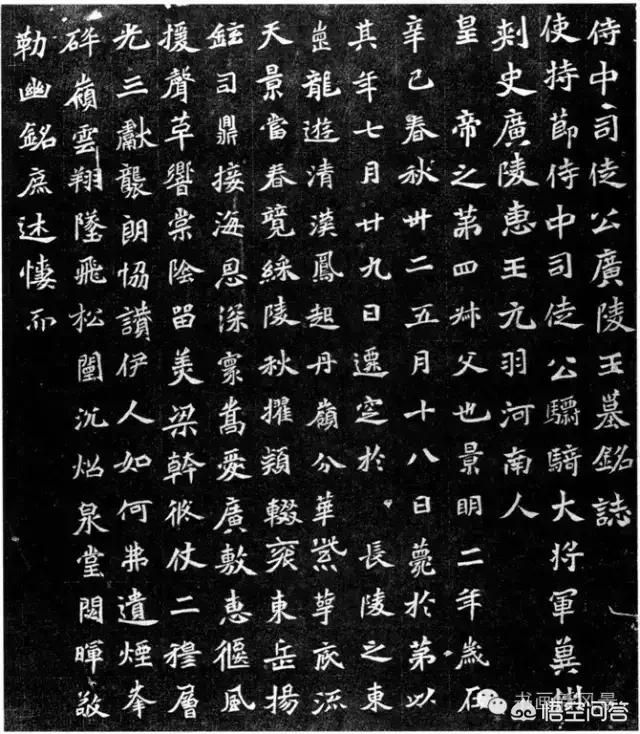 侍中司徒公廣陵王墓銘誌
使持節侍中司徒公驃騎大將軍冀州
刺史廣陵惠王元羽河南人
皇帝之第四叔父也景明二年歲在
辛巳春秋卅二五月十八日薨於第以
其年七月廿九日遷窆於長陵之東
崗龍遊清漢鳳起丹嶺分華紫萼底流
天景當春競綵陵秋擢穎輟袞東岳揚
鉉司鼎接海恩深寰嵩愛廣敷惠偃風
援聲草響棠陰留美梁幹攸仗二穆層
光三獻襲朗協讚伊人如何弗遺煙峯
碎嶺雲翔墜飛松闈沉炤泉堂閟暉敬
勒幽銘庶述悽而
悟空问答